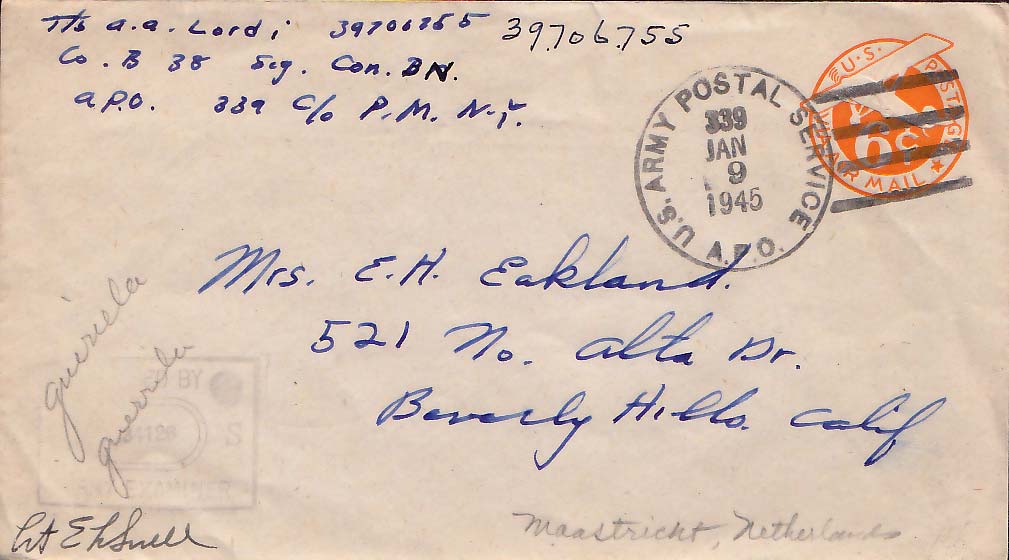 T/5 a.a. Lordi 39706755 39706755
Co. B 38 Sig. Con. BN.
a.P.O. 339 c/o P.M. N.Y.
U.S. ARMY POSTAL SERVICE
339
JAN
9
1945
A.P.O.
U.S. POSTAGE
6¢
VIA AIR MAIL
Mrs. E.H. Eakland.
521 No. Alta Dr.
Beverly Hills. Calif
guriela
guerrela
BY
34126
S
ARMY EXAMINER
Lt E L Snell
Maastricht, Netherlands